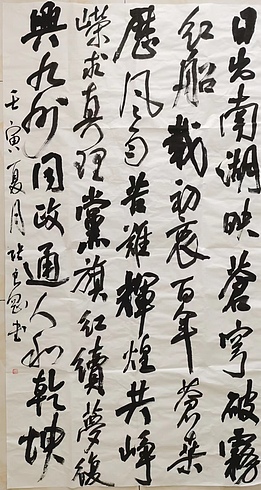 日出南湖映蒼穹破霧
紅船載初衷百年蒼桑
歷風雨苦難輝煌共崢
嶸求真理黨旗紅續夢復
興九州同政通人和乾坤
壬寅夏月 书